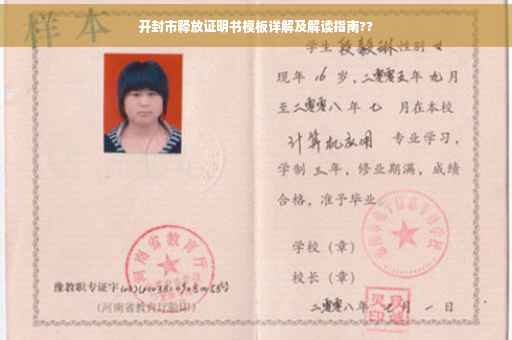 开封市释放证明书模板详解及解读指南??
样本
学生段毅琳性别女
现年16岁,二零零五年九月
至二零零八年七月在本校
计算机应用 专业学习,
学制三年,修业期满,成绩
合格,准予毕业。
学校(章)
校长(章)
二零零八年七月一日
河南省教育厅
豫教职专证字
(河南省教育厅验印)